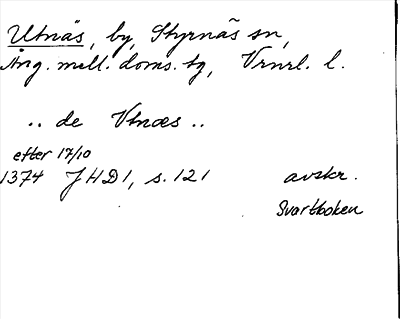 Utnäs, by, Styrnäs sn,
Ång. mell. doms. tg, Vrnrl. l.
.. de Vtnæs ..
efter 17/10
1374 JHD 1, s. 121 avskr.
Svartboken